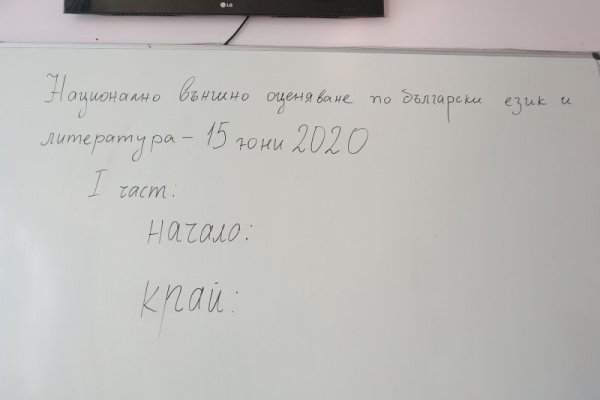 LG
Национално външно оценяване по български език и
литература – 15 юни 2020
I част:
начало:
край: